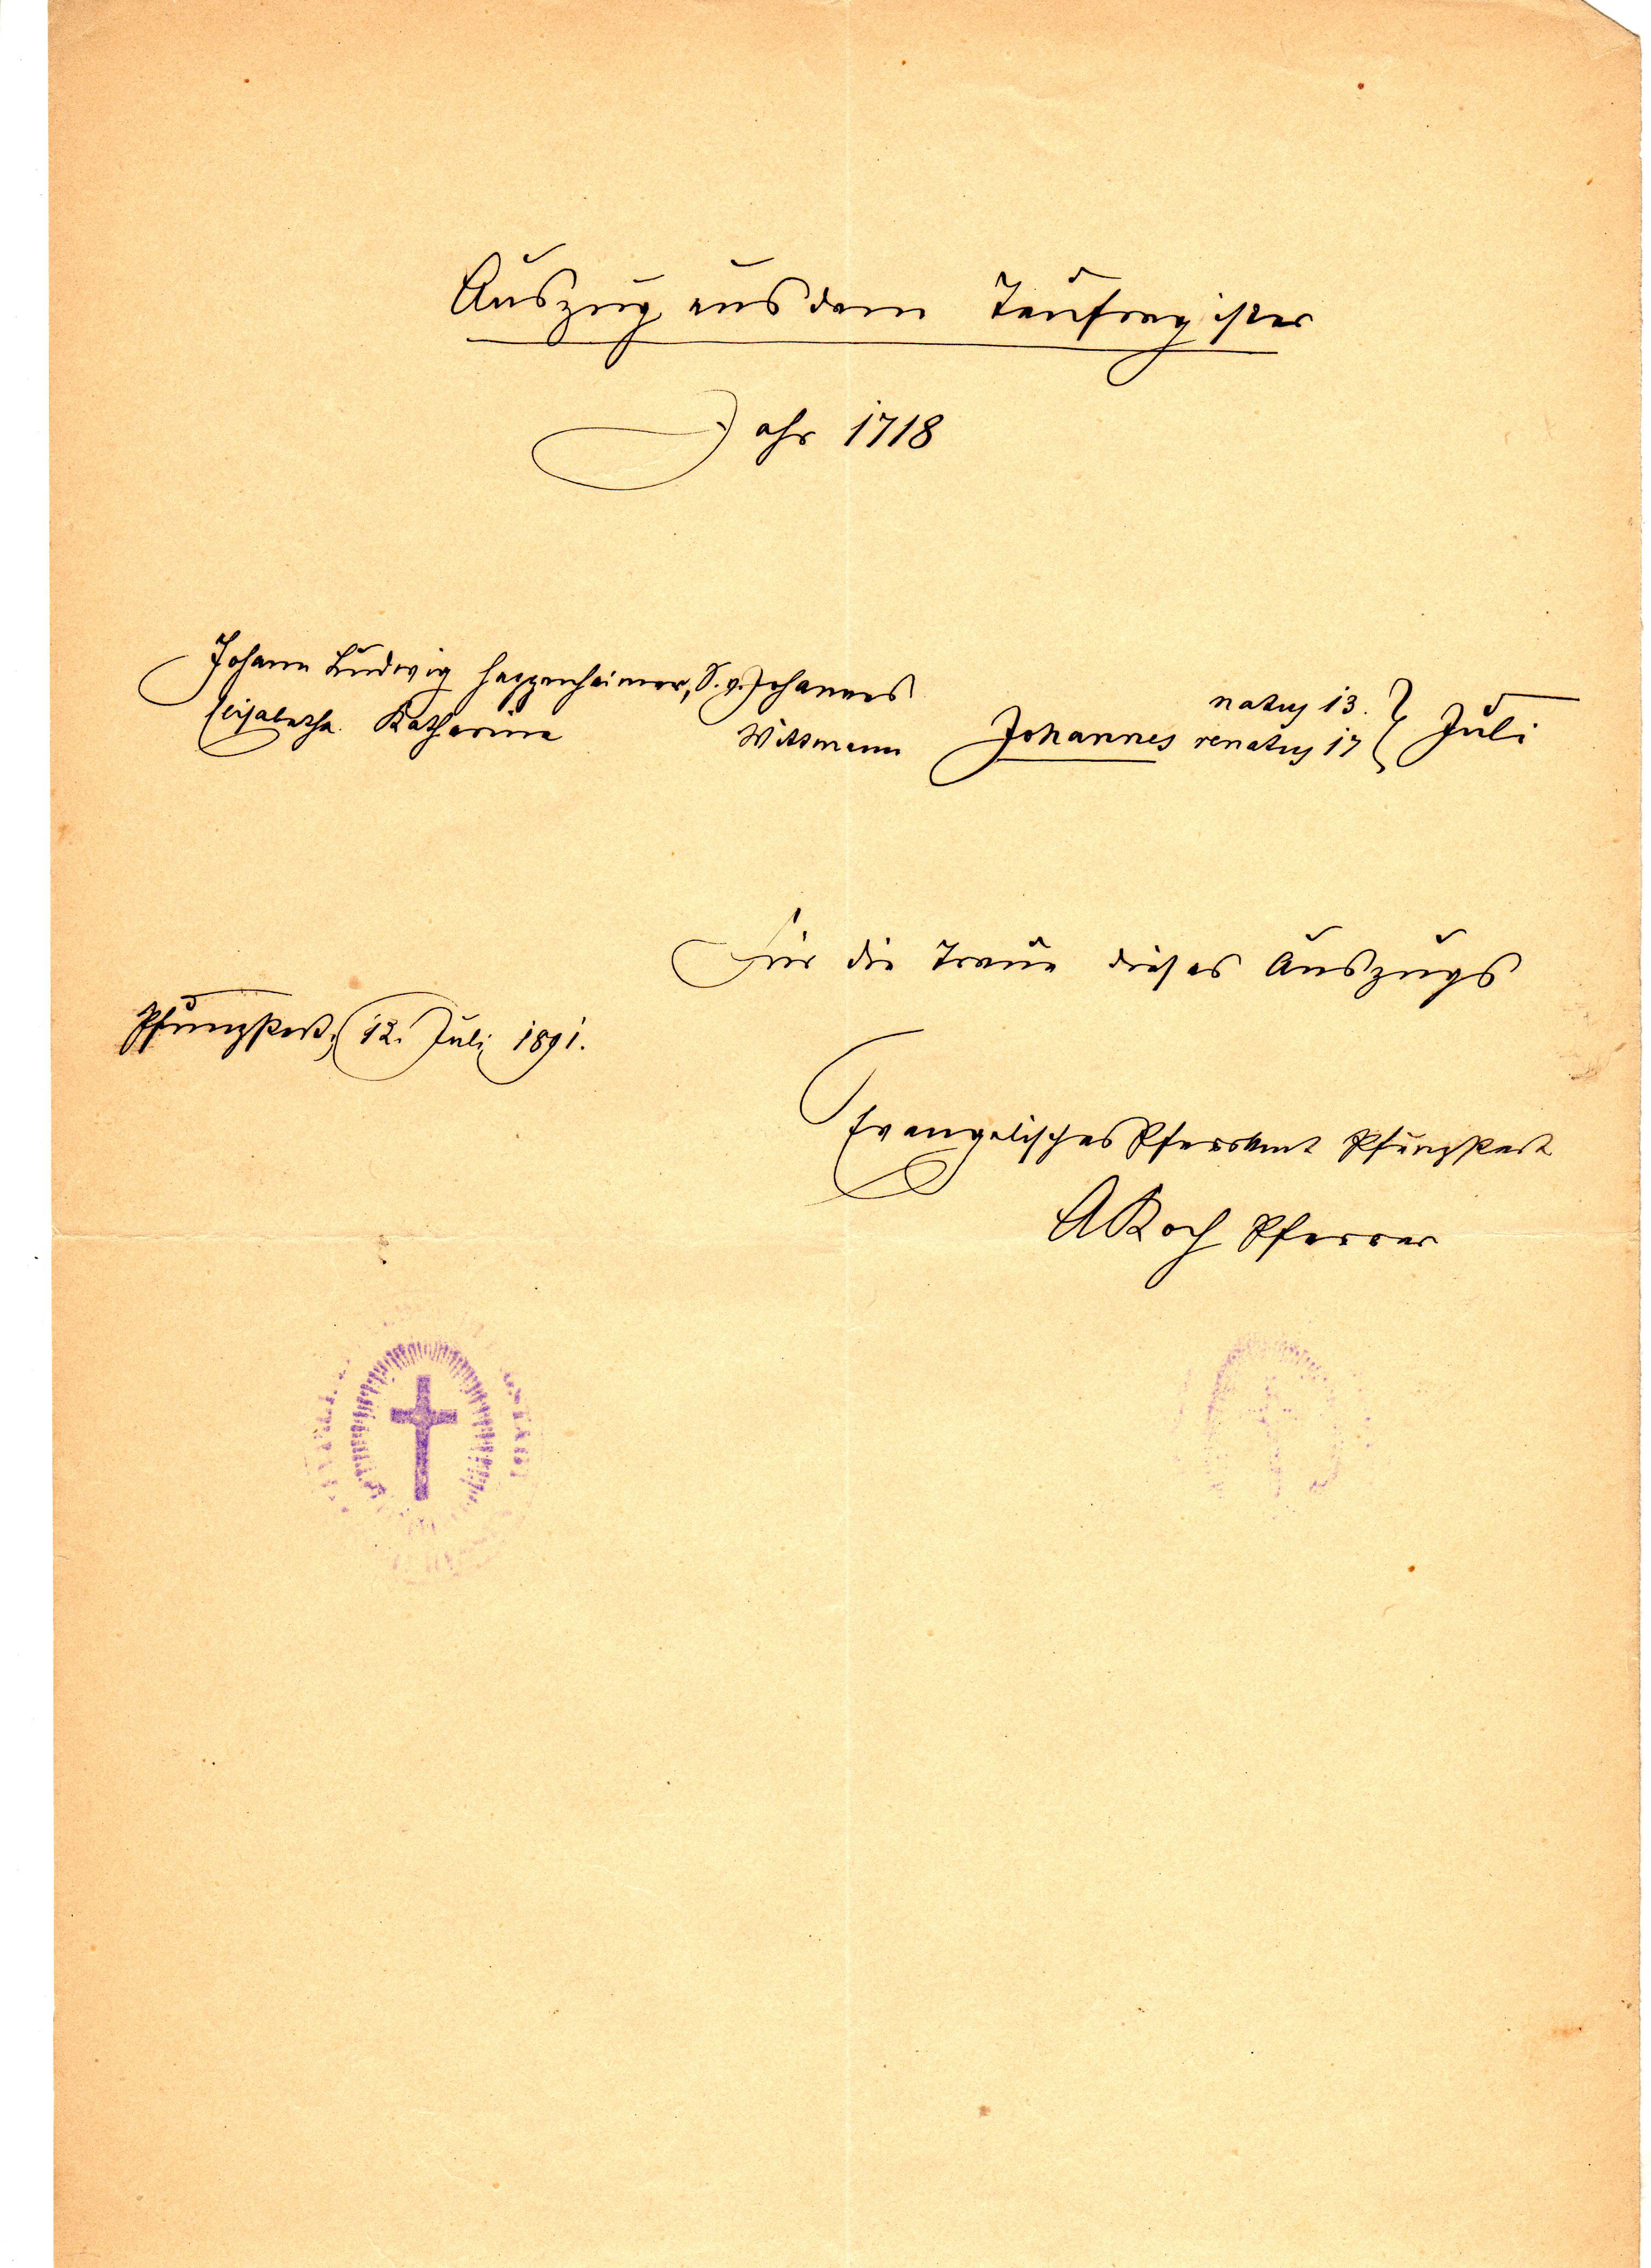 Auszug aus dem Taufregister
Jahr 1718
Johann Ludwig Heppenheimer, S. v. Johannes
Elisabetha Katharina Wittmann Johannes natus 13. renatus 17 } Juli
Für die Treue dieses Auszugs
Pfungstadt, 12. Juli 1891.
Evangelisches Pfarramt Pfungstadt
A Koch Pfarrer